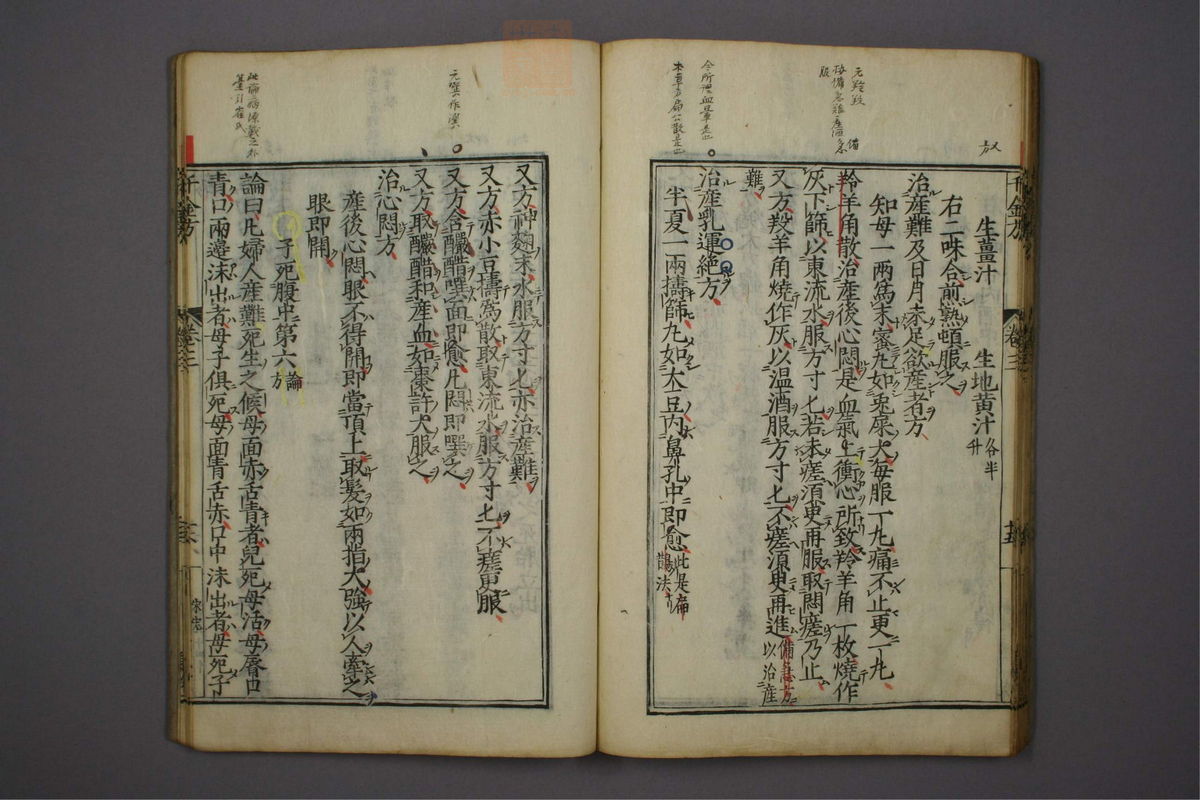 生薑汁　生地黄汁各半升
右二味合煎熟頓服之
治産難及日月未足欲産者方
知母一兩爲末蜜丸如兎屎大每服一丸痛不止更一丸
羚羊角散治産後心悶是血氣上衝心所致羚羊角一枚燒作
灰下篩以東流水服方寸匕若未瘥須更再服取悶瘥乃止
又方羖羊角燒作灰以温酒服方寸匕不瘥須更再進備急方以治産
難
治産乳運絶方
半夏一兩擣篩丸如大豆内鼻孔中即愈此是扁鵲法
又方神麴末水服方寸匕亦治産難
又方赤小豆擣爲散取東流水服方寸匕不瘥更服
又方含釅醋噀面即愈凡悶即噀之
又方取釅醋和産血如棗許大服之
治心悶方
産後心悶眼不得開即當頂上取髮如兩指大強以人牽之
眼即開
子死腹中第六論方
論曰凡婦人産難死生之候母面赤舌青者兒死母活母脣口
青口兩邊沫出者母子俱死母面青舌赤口中沫出者母死子
千金方
卷三